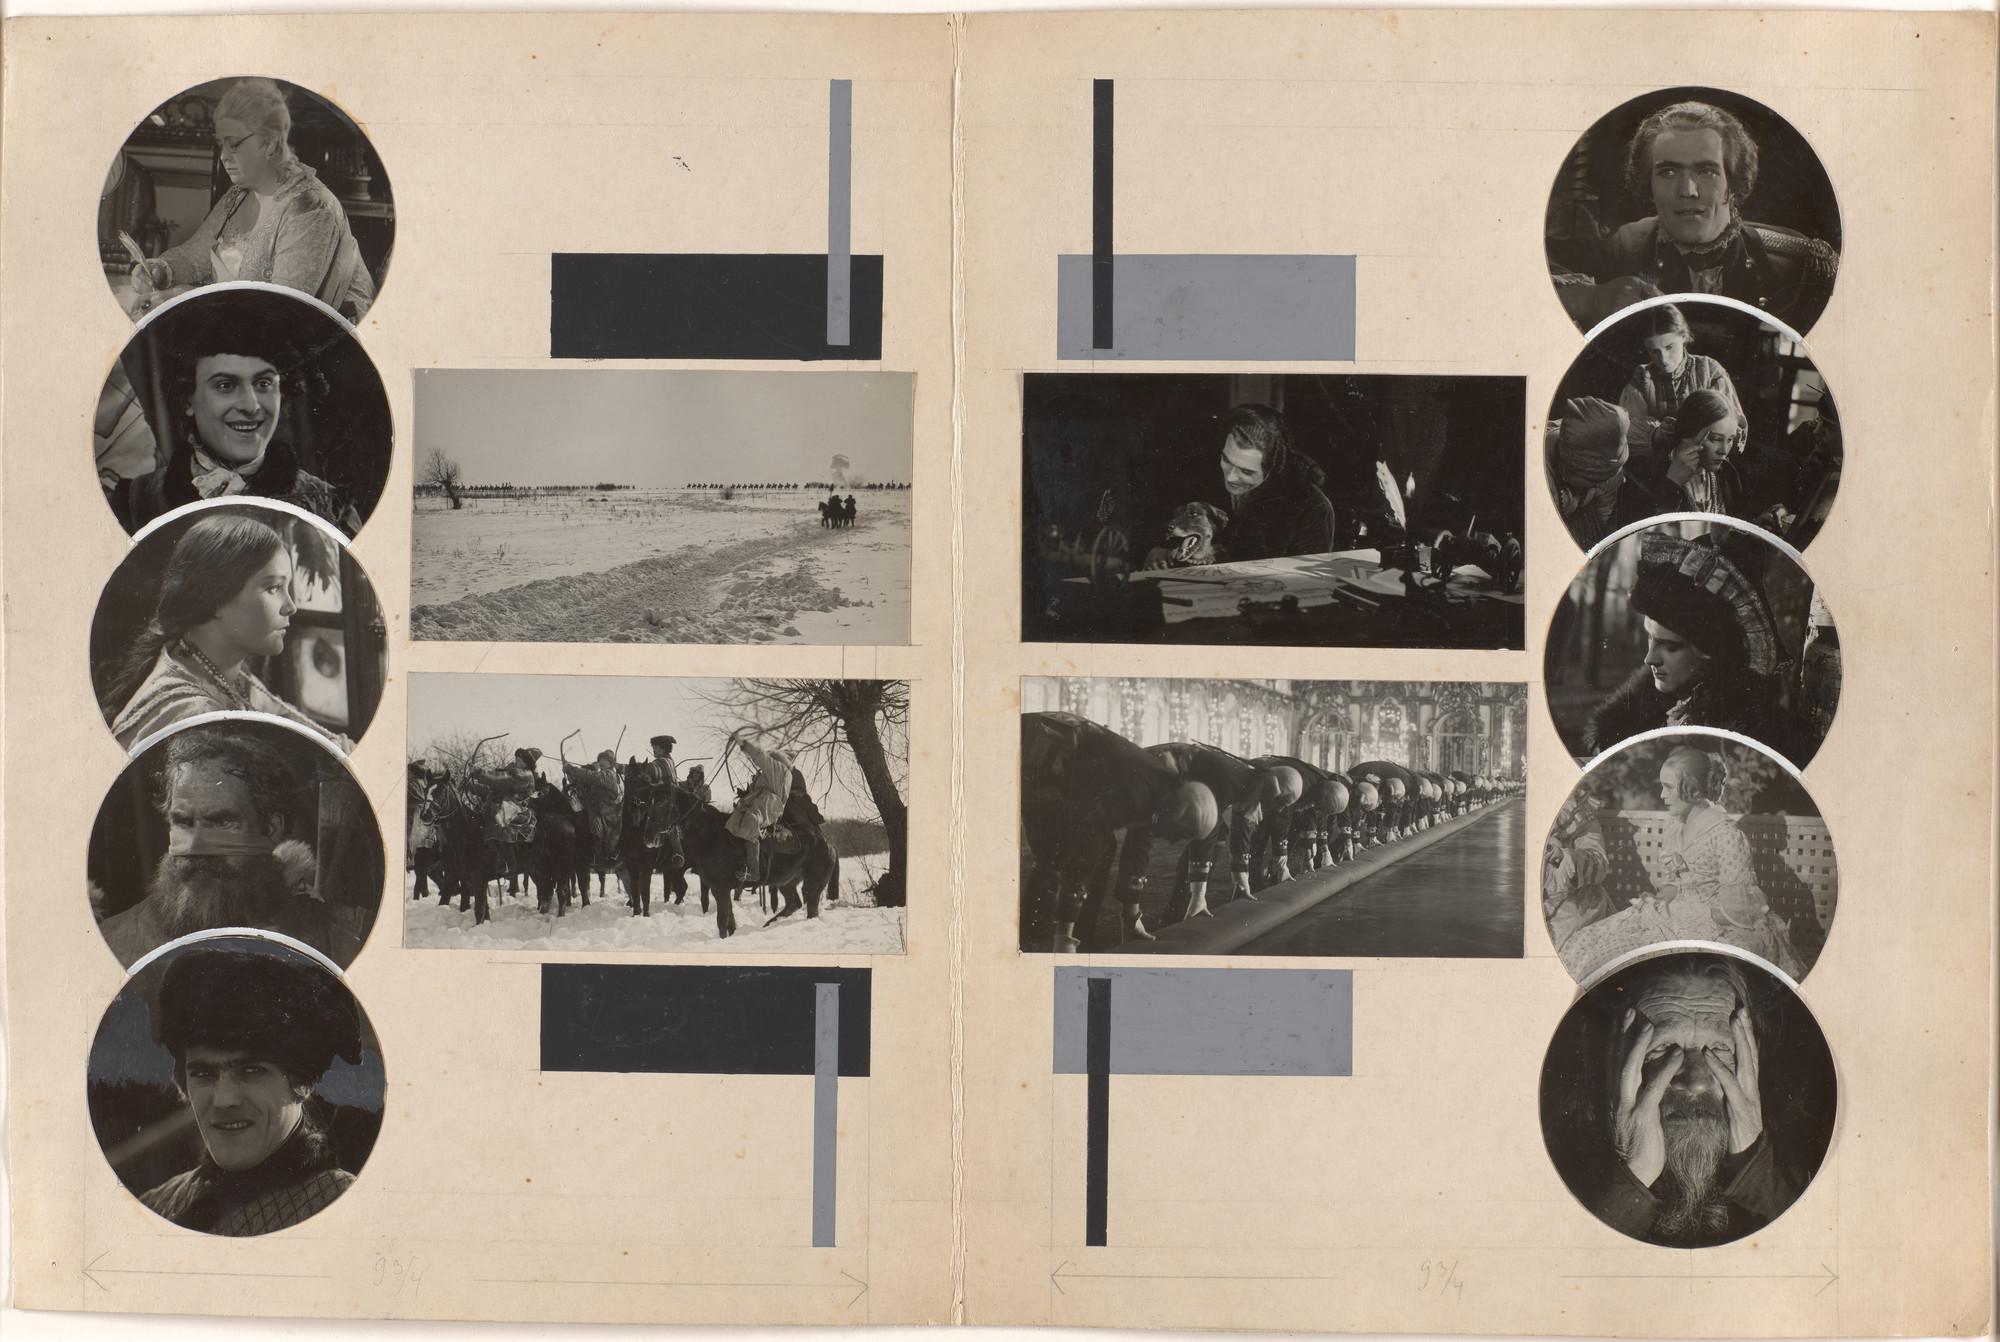 9 3/4
9 3/4